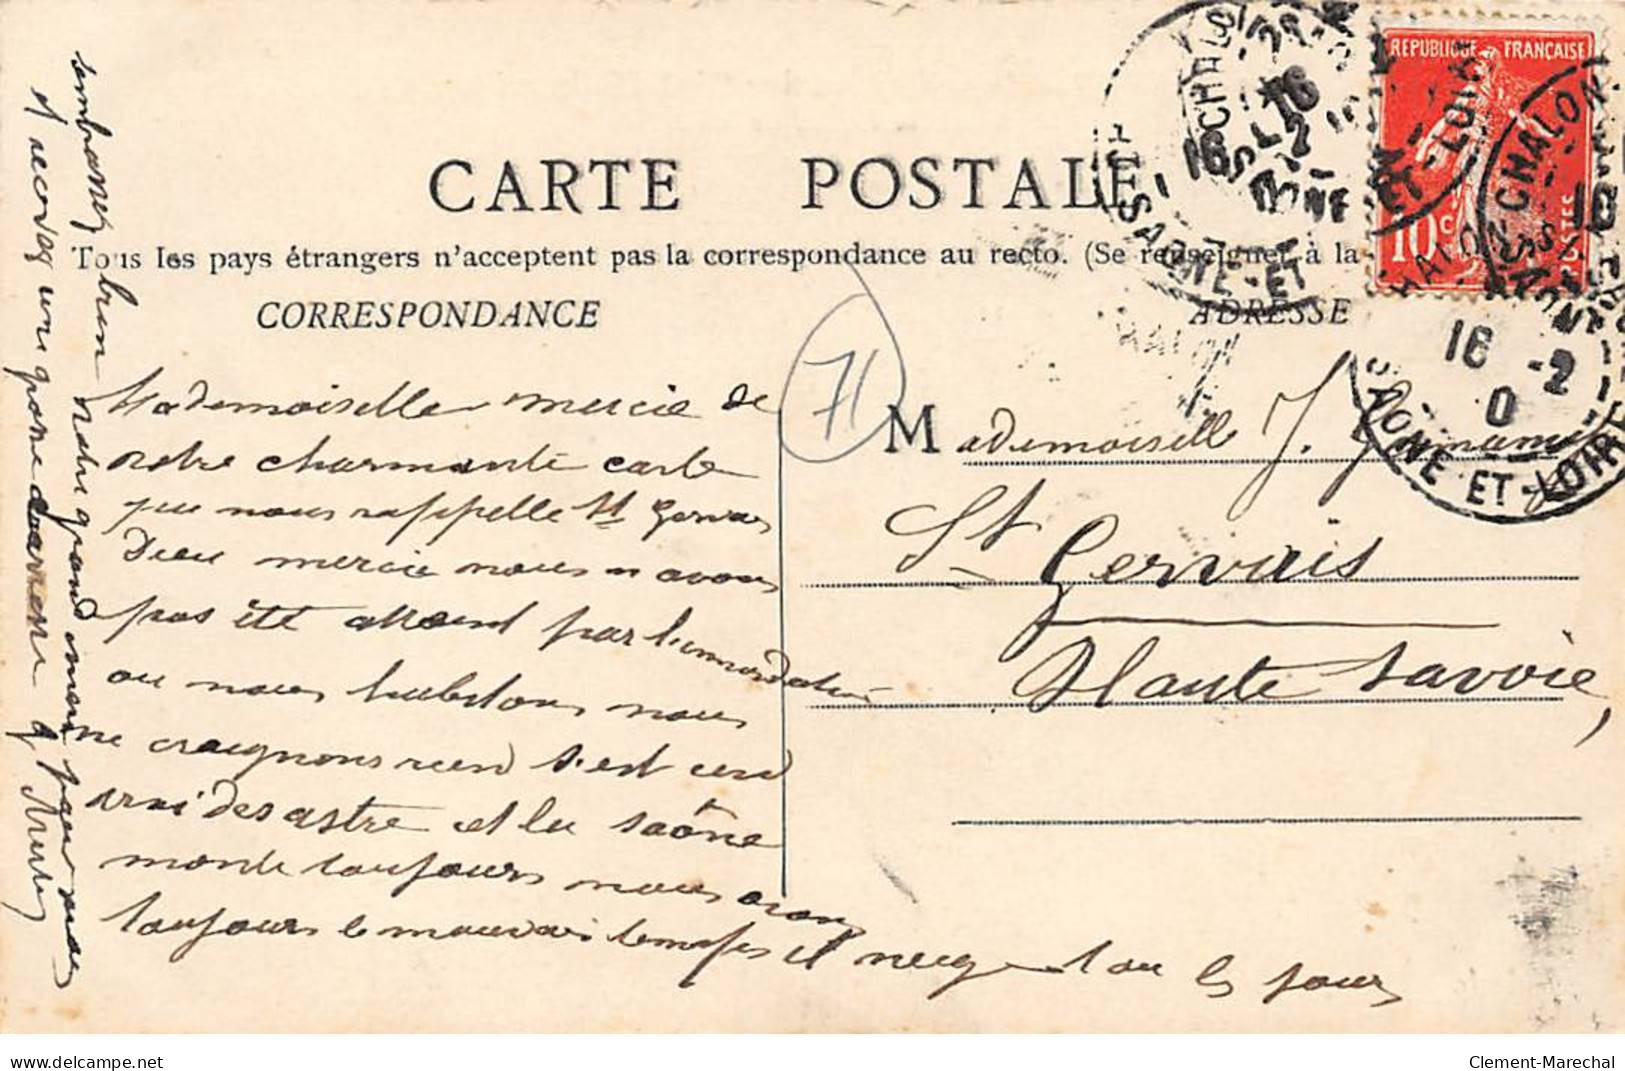 CARTE POSTALE
Tous les pays étrangers n'acceptent pas la correspondance au recto. (Se renseigner à la
CORRESPONDANCE
ADRESSE
REPUBLIQUE FRANÇAISE
10c
POSTES
CHALON-S-SAONE
SAONE-ET-LOIRE
16 -2
71
Mademoiselle mercie de
votre charmante carte
que nous rappelle St Gervais
Dieu mercie nous n avons
pas été atteint par l'innondation
ou nous habitons nous
ne craignons rien s'est un
vrai desastre et la saône
monte toujours nous avons
toujours le mauvais temps il neige tou les jours
embrassez bien votre grand mère pour nous
et recevez une
Mademoiselle J.
St Gervais
Haute Savoie
delcampe.net
Clement-Marechal